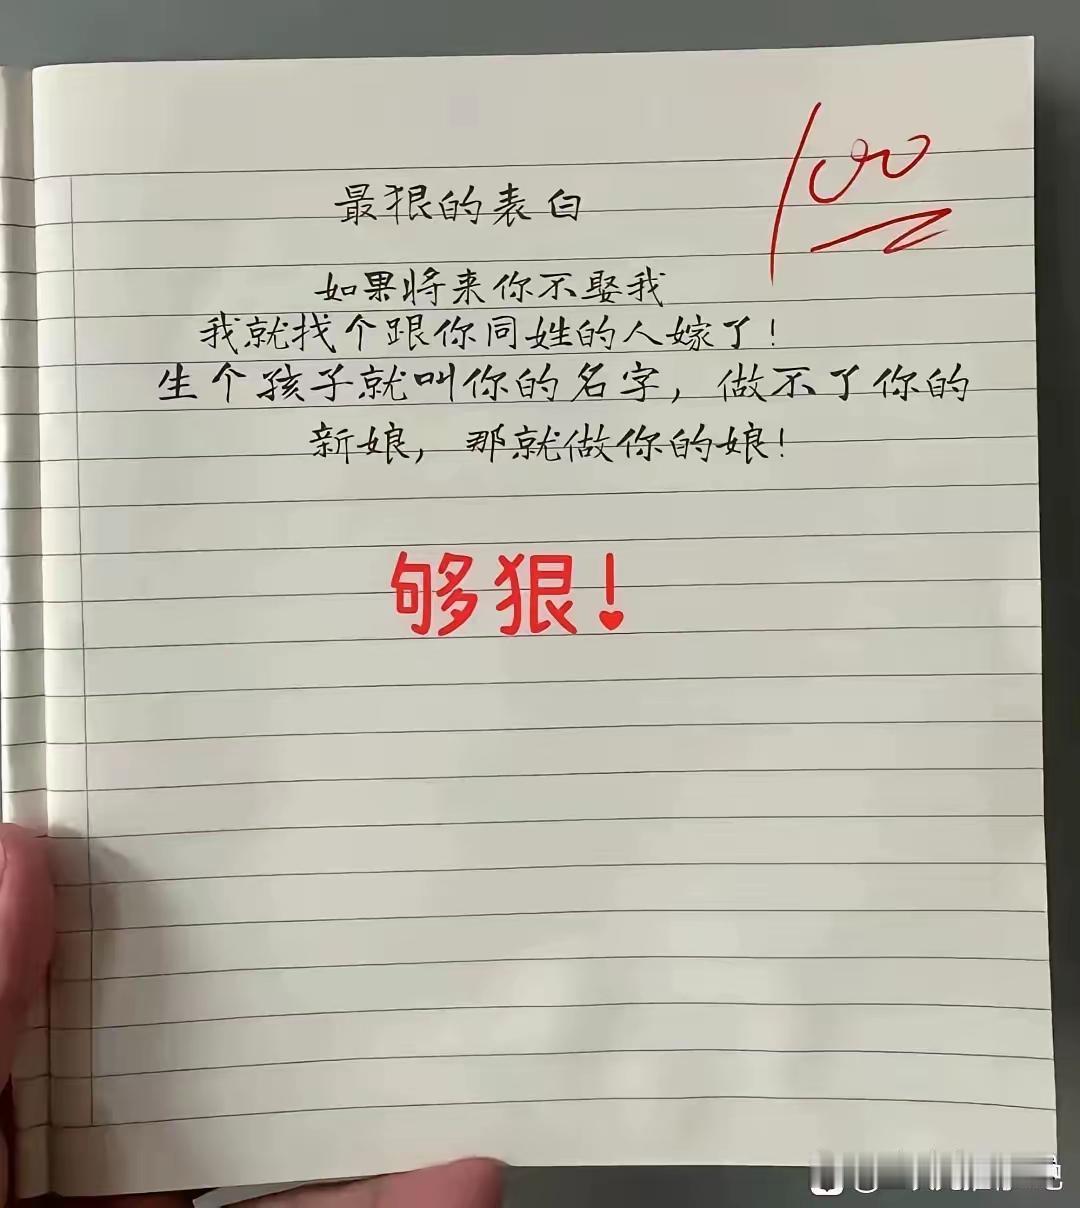 100
最狠的表白
如果将来你不娶我
我就找个跟你同姓的人嫁了！
生个孩子就叫你的名字，做不了你的
新娘，那就做你的娘！
够狠！